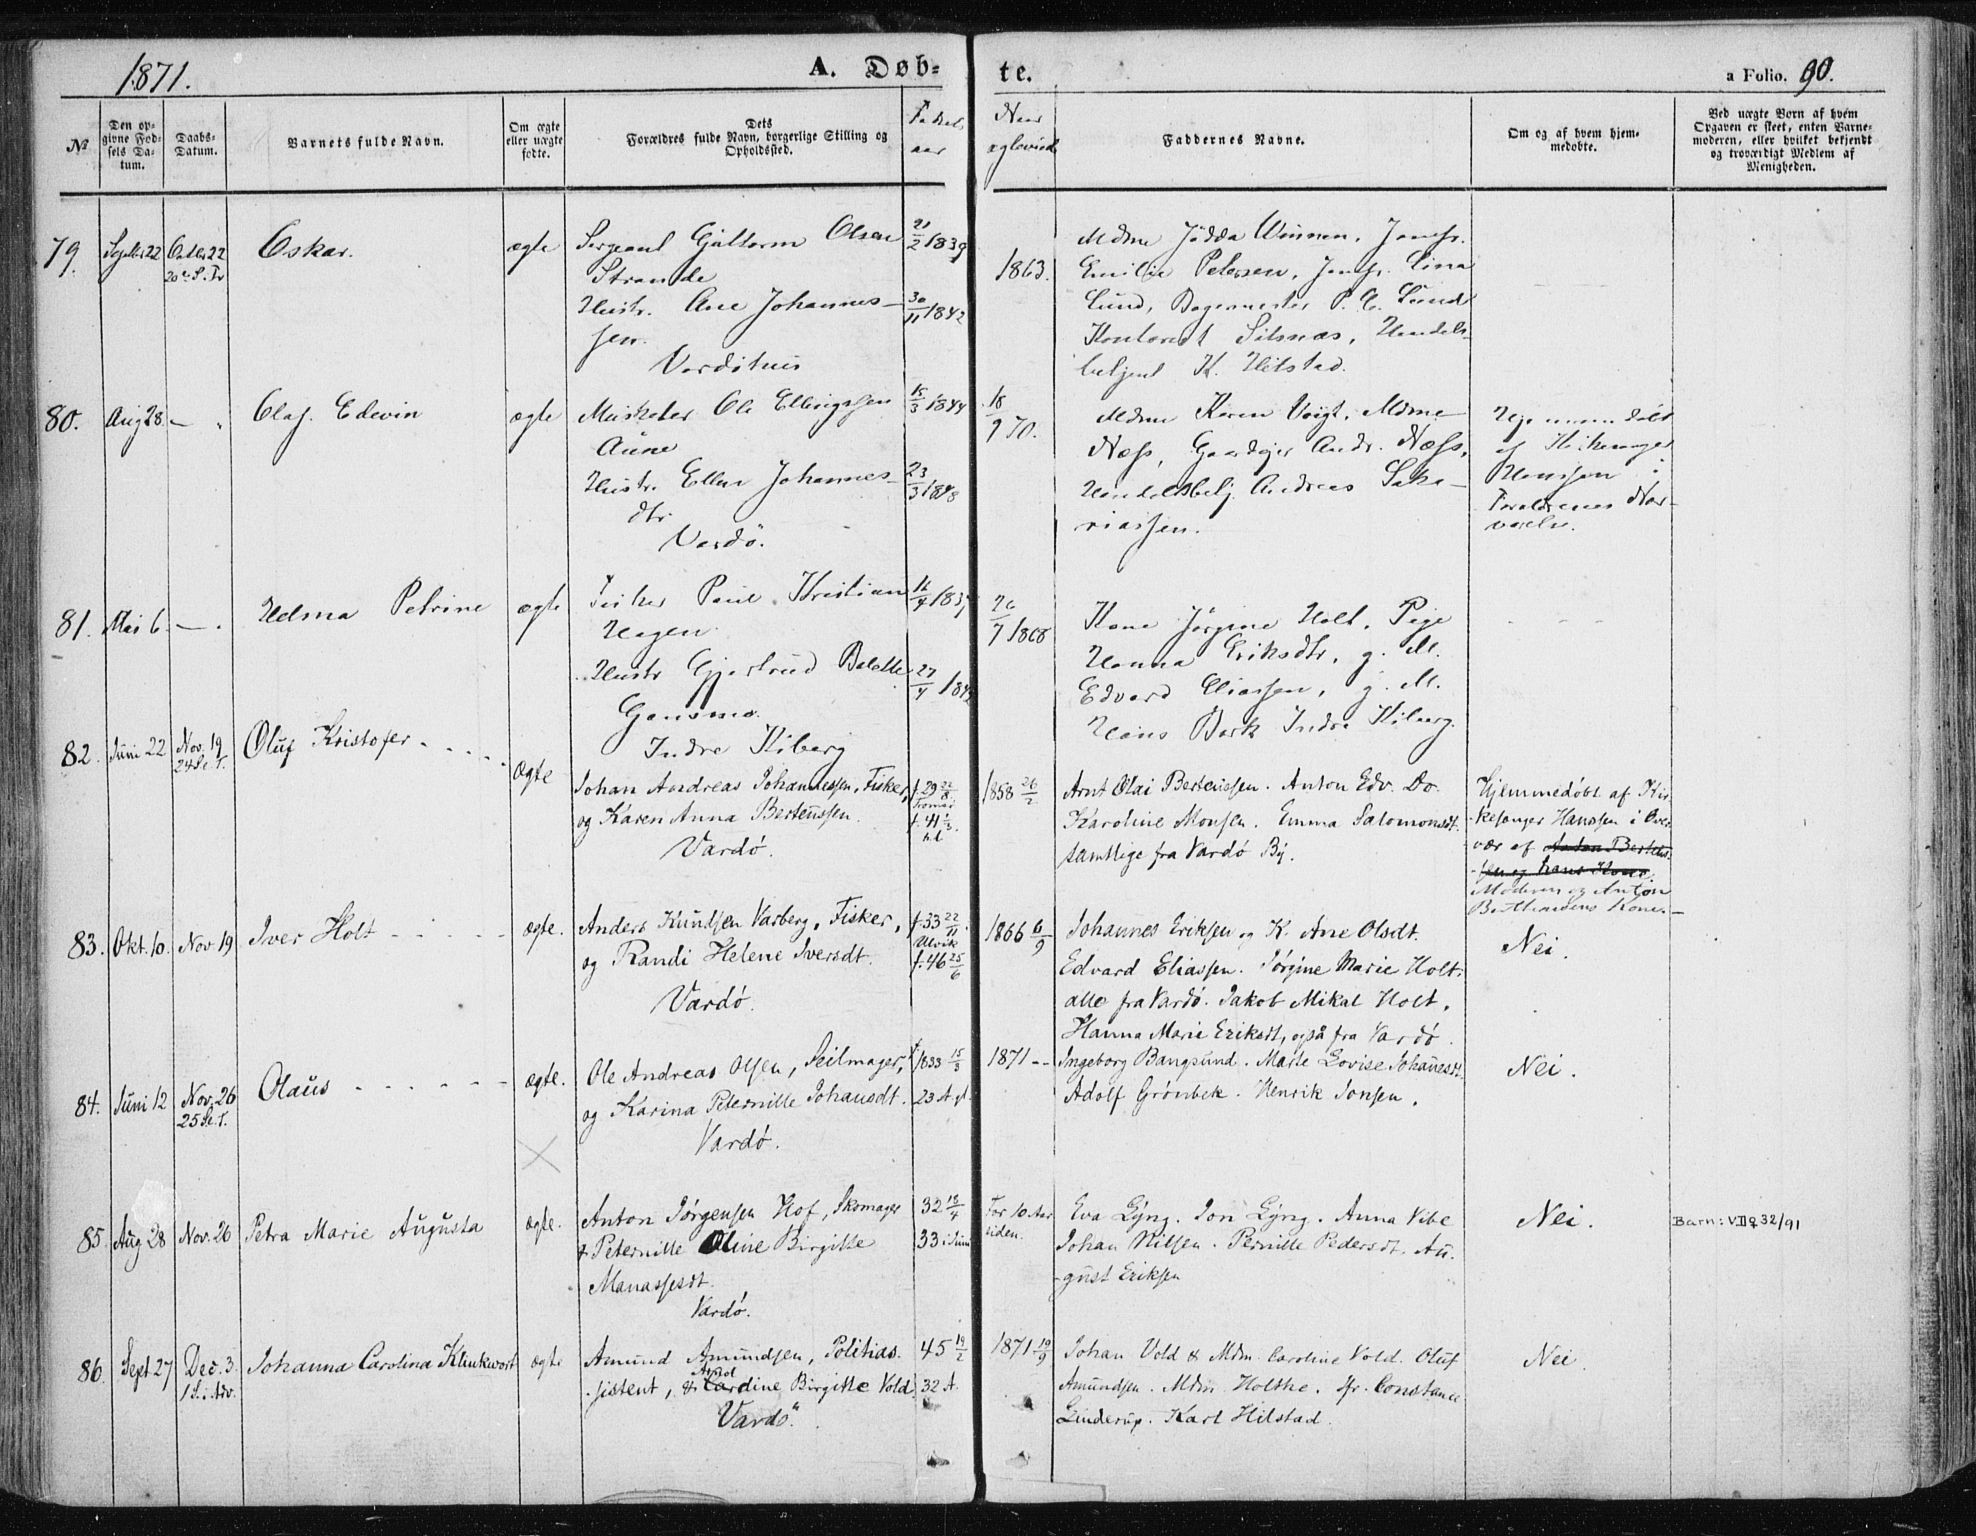 1871.
A. Døb-
te.
a Folio. 90.
№
Den op-
givne Fød-
sels Da-
tum.
Daabs-
Datum.
Barnets fulde Navn.
Om ægte
eller uægte
fødte.
Dets
Forældres fulde Navn, borgerlige Stilling og
Opholdssted.
Fødsels
aar
Naar
egteviede
Faddernes Navne.
Om og af hvem hjem-
medøbte.
Ved uægte Børn af hvem
Opgaven er skeet, enten Barne-
moderen, eller hvilket bekjendt
og troværdigt Medlem af
Menigheden.
79. Septbr 22 Octbr 22
20de S. Tr
Oskar.
ægte
Sergeant Guttorm Olsen
Strande
Hustr. Ane Johannes-
sen.
Vardöhus
21/2 1839
30/11 1842
1863.
Mdme Jödda Winnem, Jomfr.
Emilie Petersen, Jomfr. Lina
Lund, Bagermester P. C. Lund
Kontorist Silsnæs, Handels-
betjent K. Hilstad.
80. Aug 28 — .
Olaf Edevin
ægte
Musketer Ole Ellingsen
Aune
Hustr. Ellen Johannes-
dtr
Vardö.
15/3 1844
23/3 1848
18/9 70.
Mdme Karen Voigt, Mdme
Næss, Gaardejer Andr. Næss,
Handelsbetj. Andreas Saka-
riassen.
Hjemmedöbt
af Kirkesanger
Hanssen i
Forældrenes Nær-
værelse.
81. Mai 6. — .
Helma Petrine
ægte
Fisker Paul Kristian
Hagen
Hustr Gjertrud Bolette
Gansmo.
Indre Kiberg
16/4 1837
27/4 1842
26/7 1868
Kone Jörgine Holt, Pige
Hanna Eriksdtr, g. M.
Edvard Eliassen, g. M.
Hans Bark Indre Kiberg.
82. Juni 22 Nov. 19
24 S. e. T.
Oluf Kristofer - - - -
Ægte
Johan Andreas Johannessen, Fisker,
og Karen Anna Berteussen.
Vardö.
f. 29 22/8
Tromsø
f. 41 1/3.
1858 26/2
Arnt Olai Berteussen. Anton Edv. Do.
Karoline Monsen. Emma Salomonsdt.
samtlige fra Vardö By.
Hjemmedøbt af Kir-
kesanger Hanssen i Over-
vær af Anton Berteus-
sen og hans Kone.
Moderen og Anton
Berthausens Kone.—
83. Okt. 10. Nov 19
Iver Holt - - - - -
ægte.
Anders Knudsen Varberg, Fisker,
og Randi Helene Iversdt.
Vardö.
f. 33 22/11
Ulvik
f. 46 25/6
1866 6/9
Johannes Eriksen og K. Ane Olsdt.
Edvard Eliassen. Jörgine Marie Holt.
alle fra Vardö. Jakob Mikal Holt.
Hanna Marie Eriksdt, også fra Vardö.
Nei.
84. Juni 12 Nov. 26
25 S. e. T.
Olaus - - - - - -
ægte.
Ole Andreas Olsen, Seilmager,
og Karina Peternille Johansdt.
Vardö.
f. 1833 15/3
23 A gl.
1871 - -
Ingeborg Bangsund. Marie Lovise Johanesdt.
Adolf Grönbek. Henrik Jonsen.
Nei.
85 Aug 28 Nov. 26
Petra Marie Augusta
ægte.
Anton Jörgensen Hof, Skomager
& Peternille Oline Birgitte
Manassesdt.
Vardö.
32 18/4
33 i Juni
For 10 Aar
siden.
Eva Lyng. Jon Lyng. Anna Vibe
Johan Nilsen. Pernille Pedersdt. Au-
gust Eriksen
Nei.
Barn: VIIg 32/91
86. Sept 27 Dec. 3.
1 S. i Adv.
Johanna Carolina Klinkwort
ægte
Amund Amundsen, Politias-
sistent, & Cardine Birgitte Vold.
Vardö.
45 19/2
32 A.
1871 19/9
Johan Vold & Mdm. Caroline Vold. Oluf
Amundsen. Mdm. Holthe. Jfr. Constance
Linderup. Karl Hilstad.
Nei.